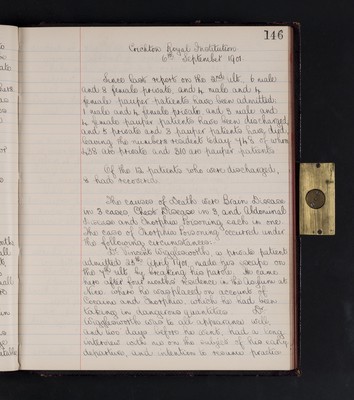 146
Crichton Royal Institution
6th September 1901
Since last report on the 2nd ult. 6 male
and 8 female private, and 4 male and 4
female pauper patients have been admitted
1 male and 4 female private and 3 male and
4 female pauper patients have been discharged
and 5 private and 3 pauper patients have died,
leaving the numbers resident today 748 of whom
438 are private and 310 are pauper patients
Of the 12 patients who were discharged,
had recovered
The causes of Death were Brain Disease
in 3 cases Chest Disease in 3, and Abdominal
Disease and Morphia Poisoning each in one
The case of Morphia Poisoning occurred under
the following circumstances:
Dr Vincent Wigglesworth, a private patient
admitted 25th April 1901 made his escape on
the 7th ult. by breaking his parole. He came
here after four months residence in the Asylum at
Nice where he was placed on account of
Cocaine and Morphia, which he had been
taking in dangerous quantities Dr
Wigglesworth was to all appearance well,
and two days before he went, had a long
interview with me on the subject of his early
departure, and intention to resume practice